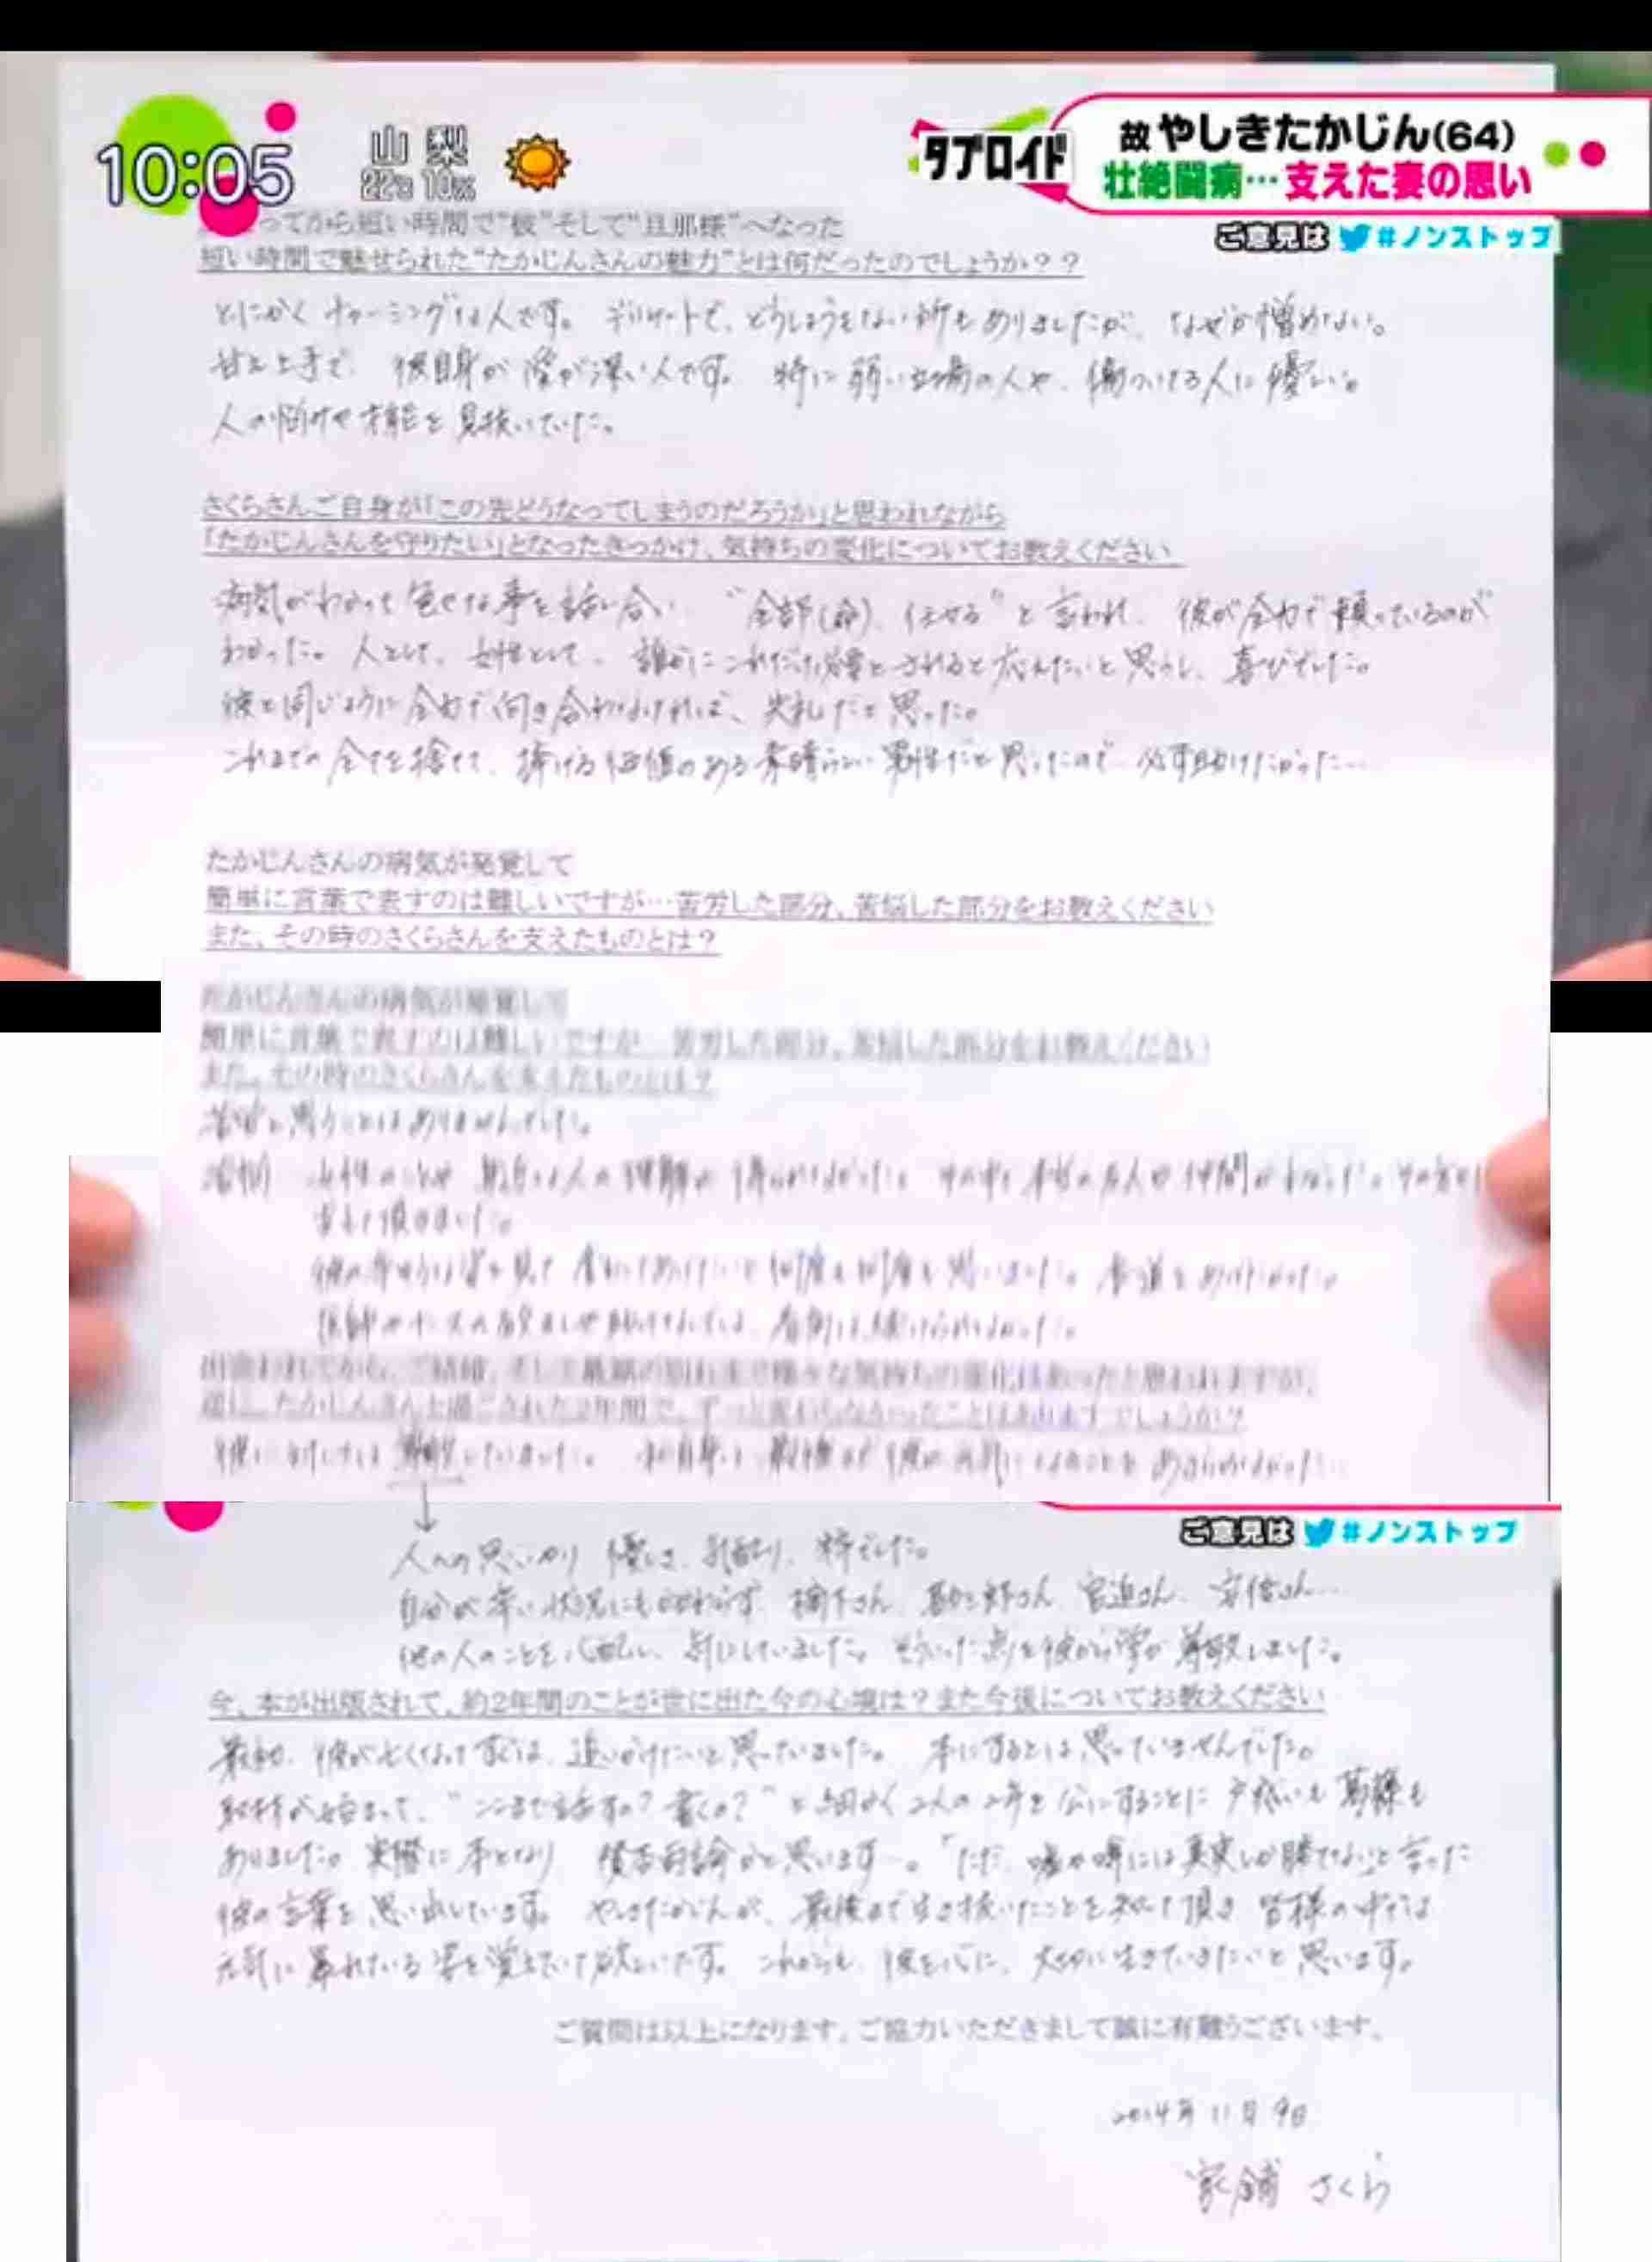 10:05
山梨
22℃ 10%
タブロイド
故 やしきたかじん(64)
壮絶闘病…支えた妻の思い
ご意見は #ノンストップ
ってから短い時間で"彼"そして"旦那様"へなった
短い時間で魅せられた"たかじんさんの魅力"とは何だったのでしょうか??
とにかくチャーミングな人です。デリケートで、どうしようもない所もありましたが、なぜか憎めない。
甘え上手で、彼自身が愛が深い人です。特に弱い立場の人や、傷つける人に優しい。
人の悩みや才能を見抜いていた。
さくらさんご自身が「この先どうなってしまうのだろうか」と思われながら
「たかじんさんを守りたい」となったきっかけ、気持ちの変化についてお教えください
病気がわかって色々な事を話し合い "全部(命)、任せる"と言われ、彼が全力で頼っているのが
わかった。人として、女性として、誰かにこれだけ必要とされると応えたいと思うし、喜びでした。
彼と同じように全力で向き合わなければ、失礼だと思った。
これまでの全てを捨てて、捧げる価値のある素晴らしい男性だと思ったので 必ず助けたかった…
たかじんさんの病気が発覚して
簡単に言葉で表すのは難しいですが…苦労した部分、苦悩した部分をお教えください
また、その時のさくらさんを支えたものとは?
たかじんさんの病気が発覚して
簡単に言葉で表すのは難しいですが…苦労した部分、苦悩した部分をお教えください
また、その時のさくらさんを支えたものとは?
苦労と思うことはありませんでした。
苦悩 身近な人の理解が得られなかった。その中で本当の友人や仲間がわかった。その方々に
支えて頂きました。
彼の辛そうな姿を見て 変わってあげたいと何度も何度も思いました。
医師やナースの励ましや助けなしでは、看病は続けられなかった。
出会われてから、ご結婚、そして最期の別れまで様々な気持ちの変化はあったと思われますが、
逆に、たかじんさんと過ごされた2年間で、ずっと変わらなかったことはありますでしょうか?
彼に対しては尊敬していました。私自身も最後まで彼が元気になることをあきらめなかった…
↓
人への思いやり 優しさ、気配り、粋でした。
自分が辛い状況にもかかわらず、橋下さん、勘三郎さん、宮迫さん、
他の人のことを心配し、気にしていました。そういった点を彼から学び尊敬しました。
今、本が出版されて、約2年間のことが世に出た今の心境は?また今後についてお教えください
最初、彼が亡くなってすぐは、追いかけたいと思っていました。本にするとは思っていませんでした。
取材が始まって、"ここまで話すの?書くの?"と細かく2人の2年を公にすることに戸惑いも葛藤も
ありました。実際に本となり 賛否両論かと思います…。「ただ、嘘や噂には真実しか勝てない」と言った
彼の言葉を思い出しています。やしきたかじんが、最後まで生き抜いたことを知って頂き 皆様の中では
元気に暴れている姿を覚えていて欲しいです。これからも、彼を心に、大切に生きていきたいと思います。
ご質問は以上になります。ご協力いただきまして誠に有難うございます。
2014年11月9日
家鋪 さくら
ご意見は #ノンストップ